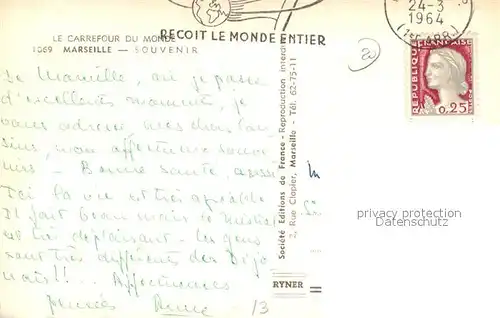 LE CARREFOUR DU MONDE
1069 MARSEILLE — SOUVENIR
REÇOIT LE MONDE ENTIER
24-3
1964
(1er ARR.)
RÉPUBLIQUE FRANÇAISE
0,25
De Marseille, où je passe
d'excellents moments, je
vous adresse, mes chers
mon affectueux
Bonne santé,
Ici la vie est très agréable
Il fait beau mais le mistral
est très déplaisant - Les gens
sont très différents des
nais!!.. Affectueuses
pensées
13
Société Editions de France - Reproduction interdite
2, Rue Clapier, Marseille - Tél. 62-75-11
RYNER
privacy protection
Datenschutz